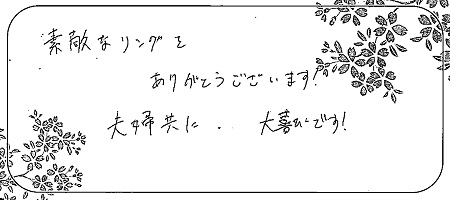 素敵なリングを
ありがとうございます!
夫婦共に、大喜びです!